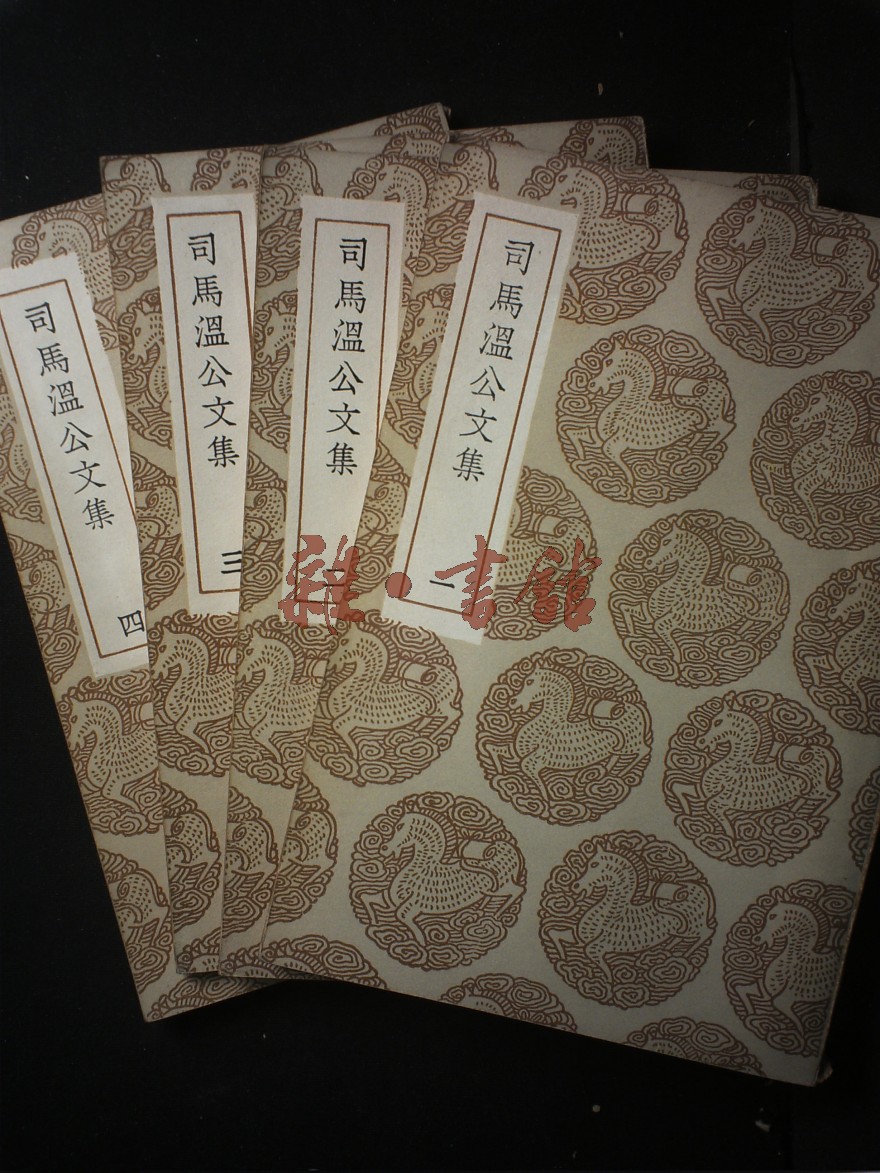 司馬溫公文集
一
司馬溫公文集
二
司馬溫公文集
三
司馬溫公文集
四
雜·書館